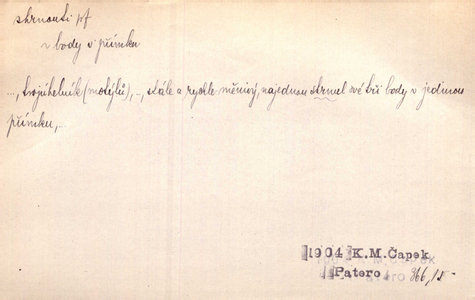 skrnouti pf
v body v přímku
..., trojúhelník (motýlů), .., stále a rychle měnivý, najednou skrnul své tři body v jedinou
přímku,..
1904 K.M.Čapek
Patero 366,15